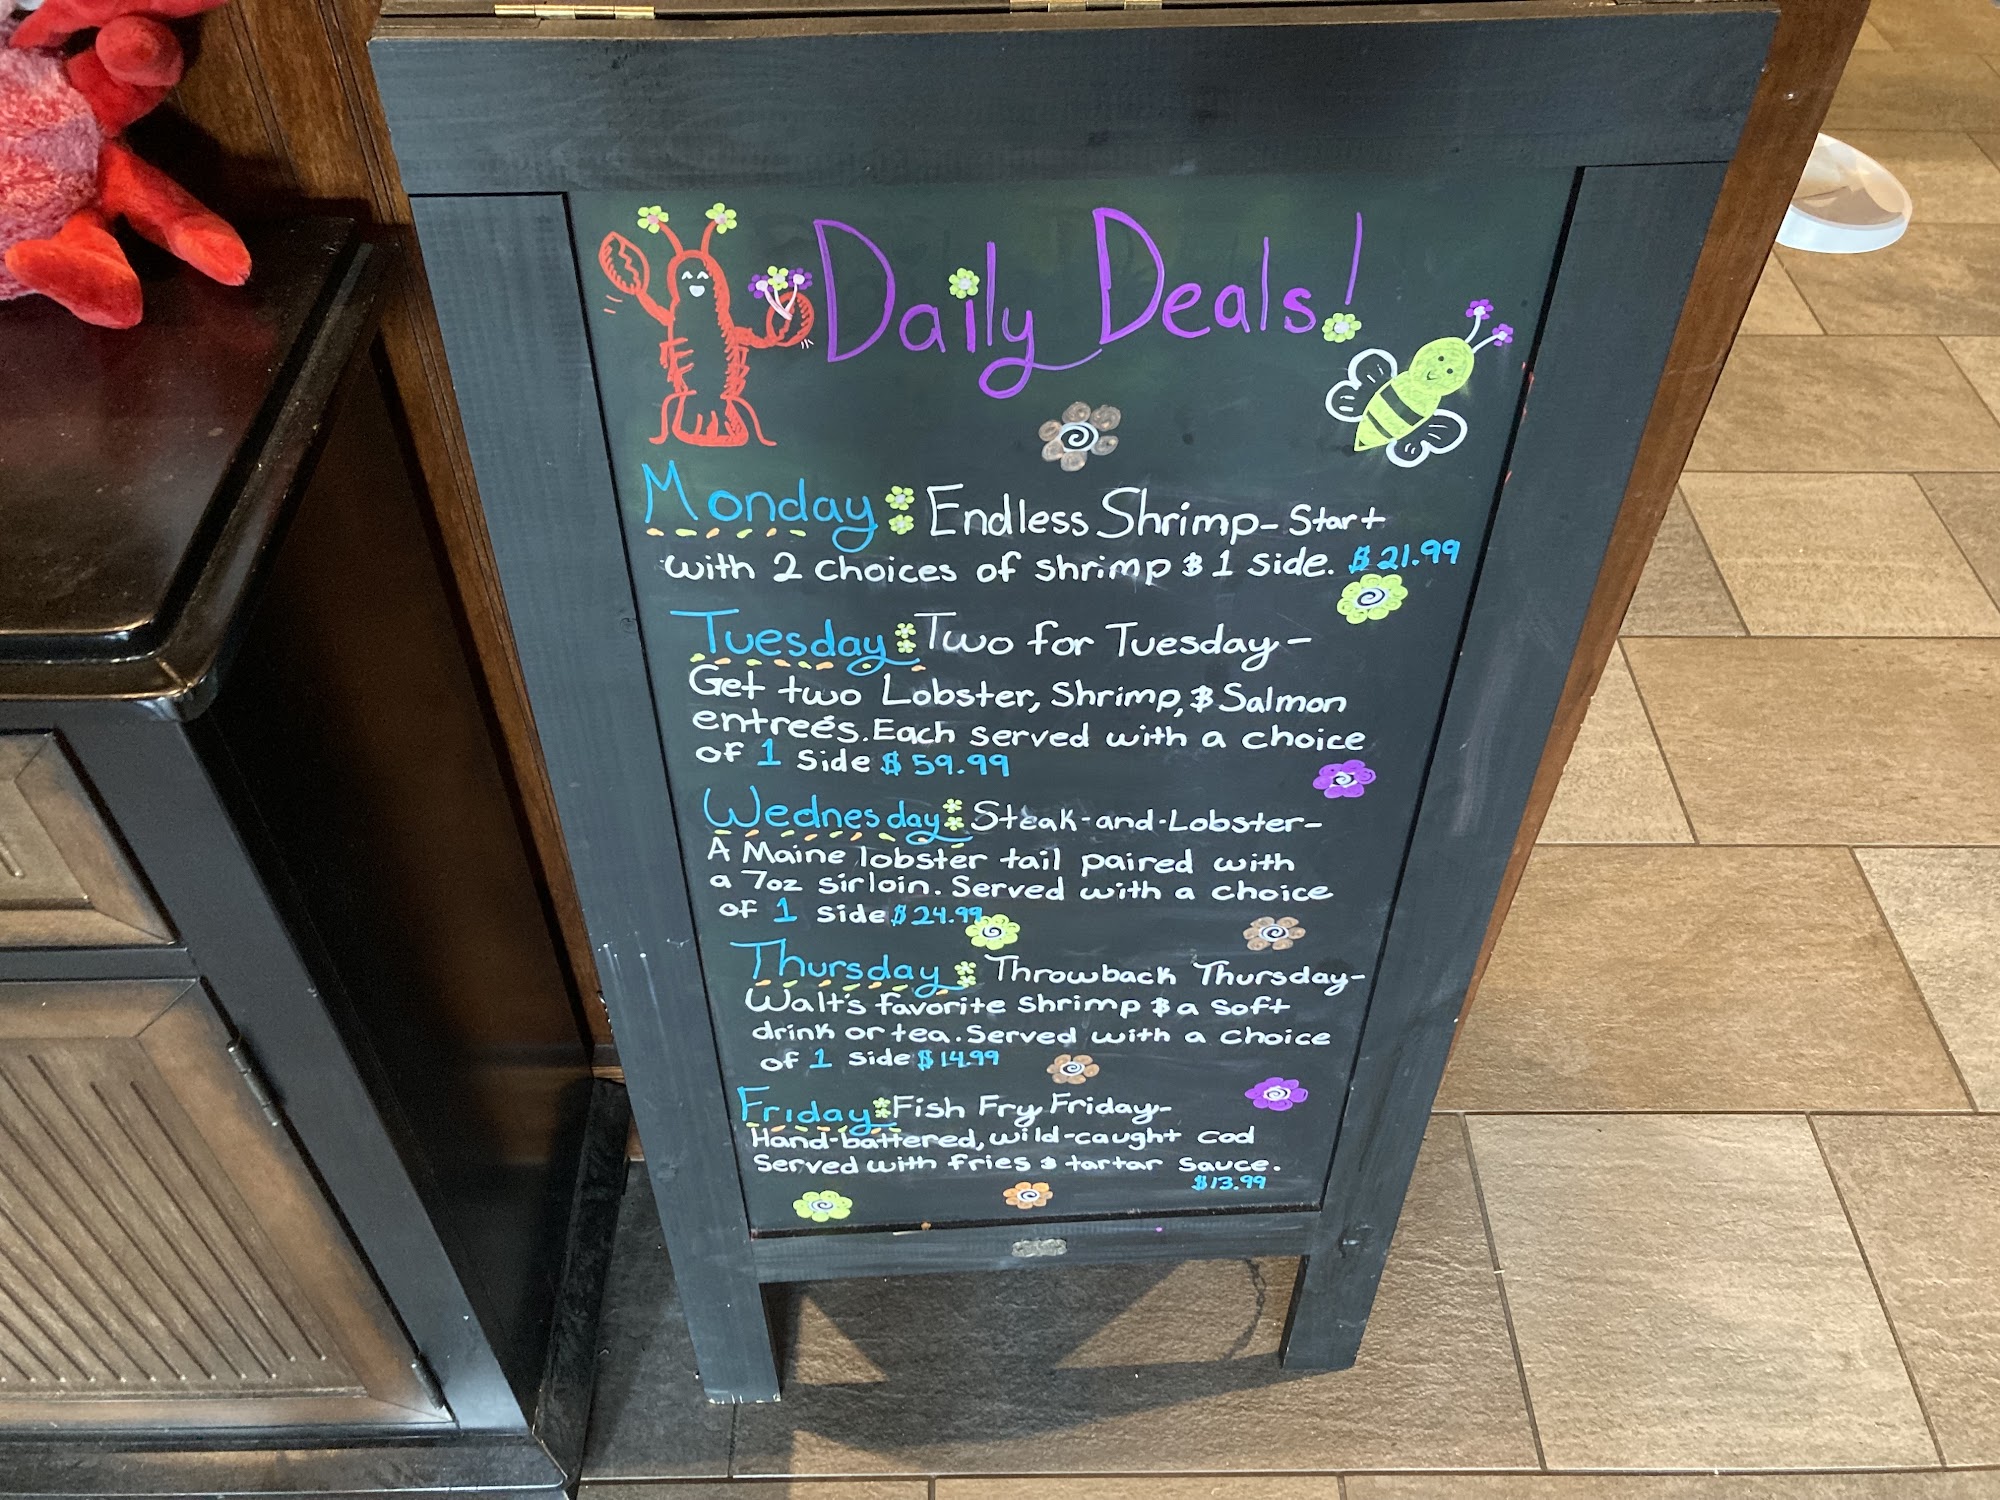 Daily Deals!
Monday: Endless Shrimp- Start
with 2 choices of shrimp & 1 side. $21.99
Tuesday: Two for Tuesday-
Get two Lobster, Shrimp, & Salmon
entreés. Each served with a choice
of 1 side $59.99
Wednesday: Steak-and-Lobster-
A Maine lobster tail paired with
a 7oz sirloin. Served with a choice
of 1 side $24.99
Thursday: Throwback Thursday-
Walt's favorite shrimp & a soft
drink or tea. Served with a choice
of 1 side $14.99
Friday: Fish Fry Friday-
Hand-battered, wild-caught cod
Served with fries & tartar sauce.
$13.99